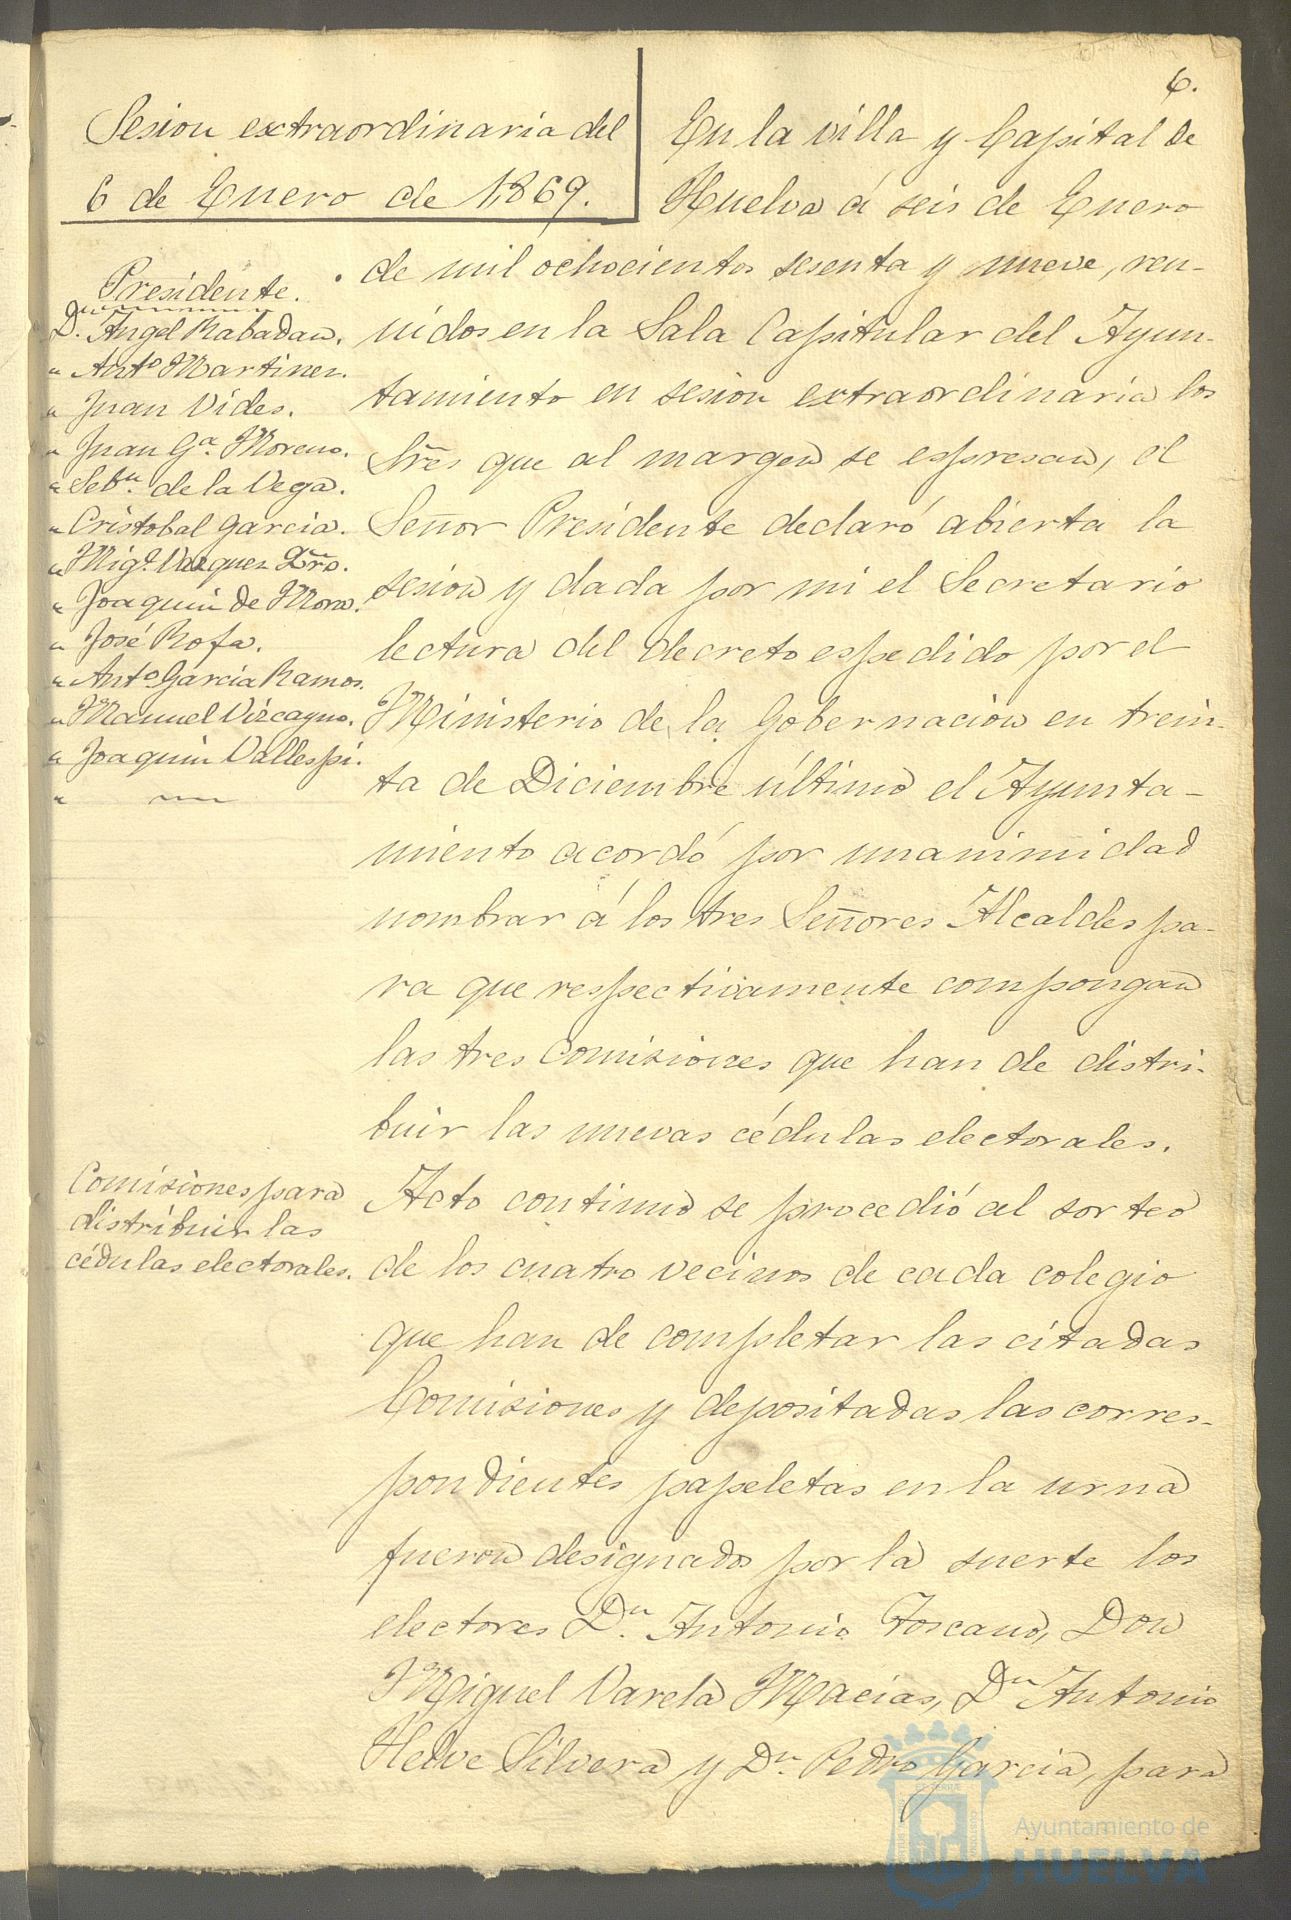 6.
Sesion extraordinaria del
6 de Enero de 1869.
Presidente.
D. Angel Rabadan.
" Antº Martinez.
" Juan Vides.
" Juan Gª. Moreno.
" Sebn. de la Vega.
" Cristobal Garcia.
" Migl. Vazquez
" Joaquin de Mora.
" José Rofa.
" Antº Garcia Ramos.
" Manuel Vizcayno.
" Joaquin Vallespi.
En la villa y Capital de
Huelva á seis de Enero
de mil ochocientos sesenta y nueve, reu-
nidos en la Sala Capitular del Ayun-
tamiento en sesion extraordinaria los
Sres que al margen se espresan, el
Señor Presidente declaró abierta la
sesion y dada por mi el Secretario
lectura del decreto espedido por el
Ministerio de la Gobernacion en trein-
ta de Diciembre último el Ayunta-
miento acordó por unanimidad
nombrar á los tres Señores Alcaldes pa-
ra que respectivamente compongan
las tres Comisiones que han de distri-
buir las nuevas cédulas electorales.
Comisiones para
distribuir las
cédulas electorales.
Acto continuo se procedió al sorteo
de los cuatro vecinos de cada colegio
que han de completar las citadas
Comisiones y depositadas las corres-
pondientes papeletas en la urna
fueron designados por la suerte los
electores Dn. Antonio Toscano, Don
Miguel Varela Macias, Dn Antonio
Silvera y Dn. Pedro Garcia, para
Ayuntamiento de
HUELVA